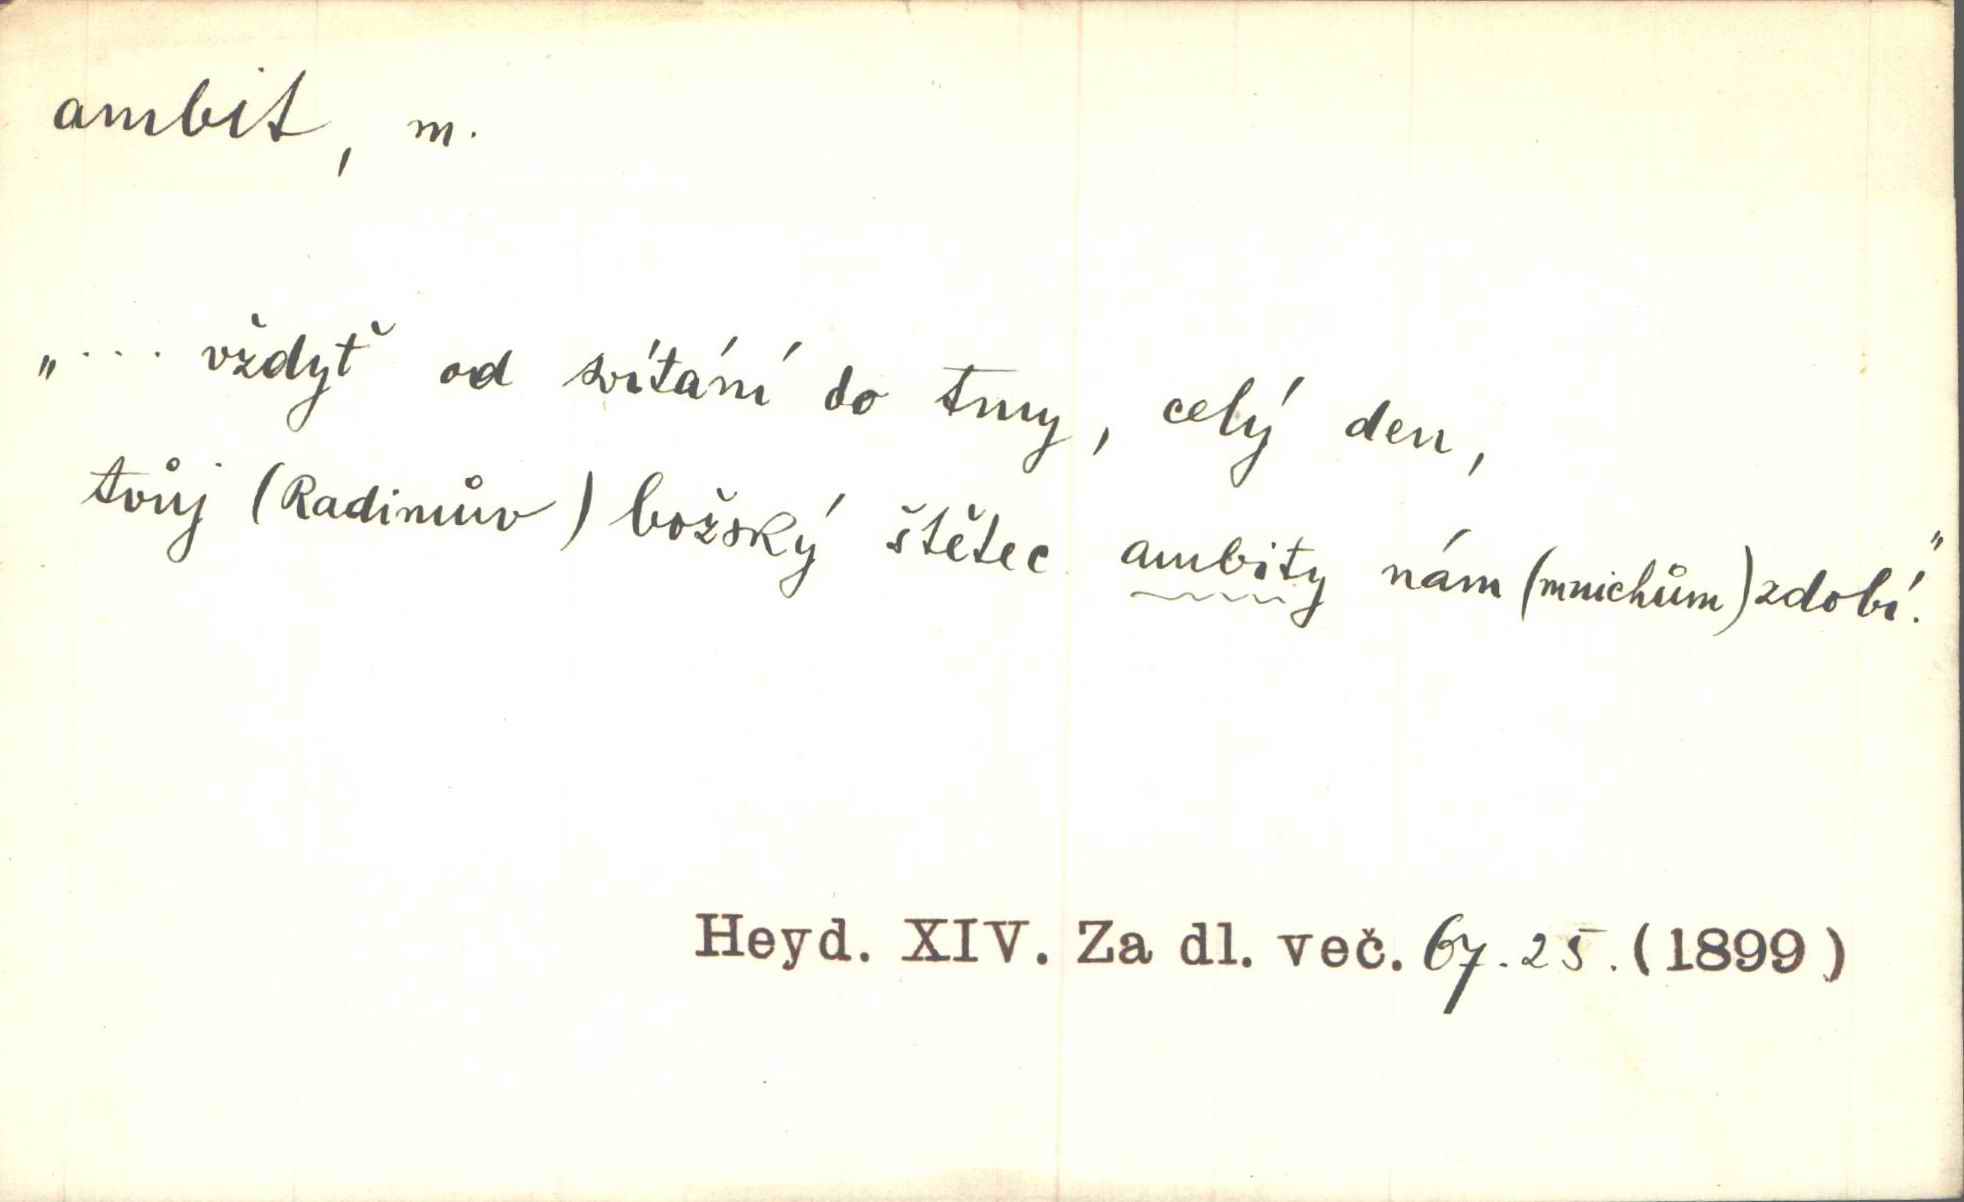 ambit, m.
„... vždyť od svítání do tmy, celý den,
tvůj (Radimův) božský štětec ambity nám (mnichům) zdobí."
Heyd. XIV. Za dl. več. 67.25. (1899)